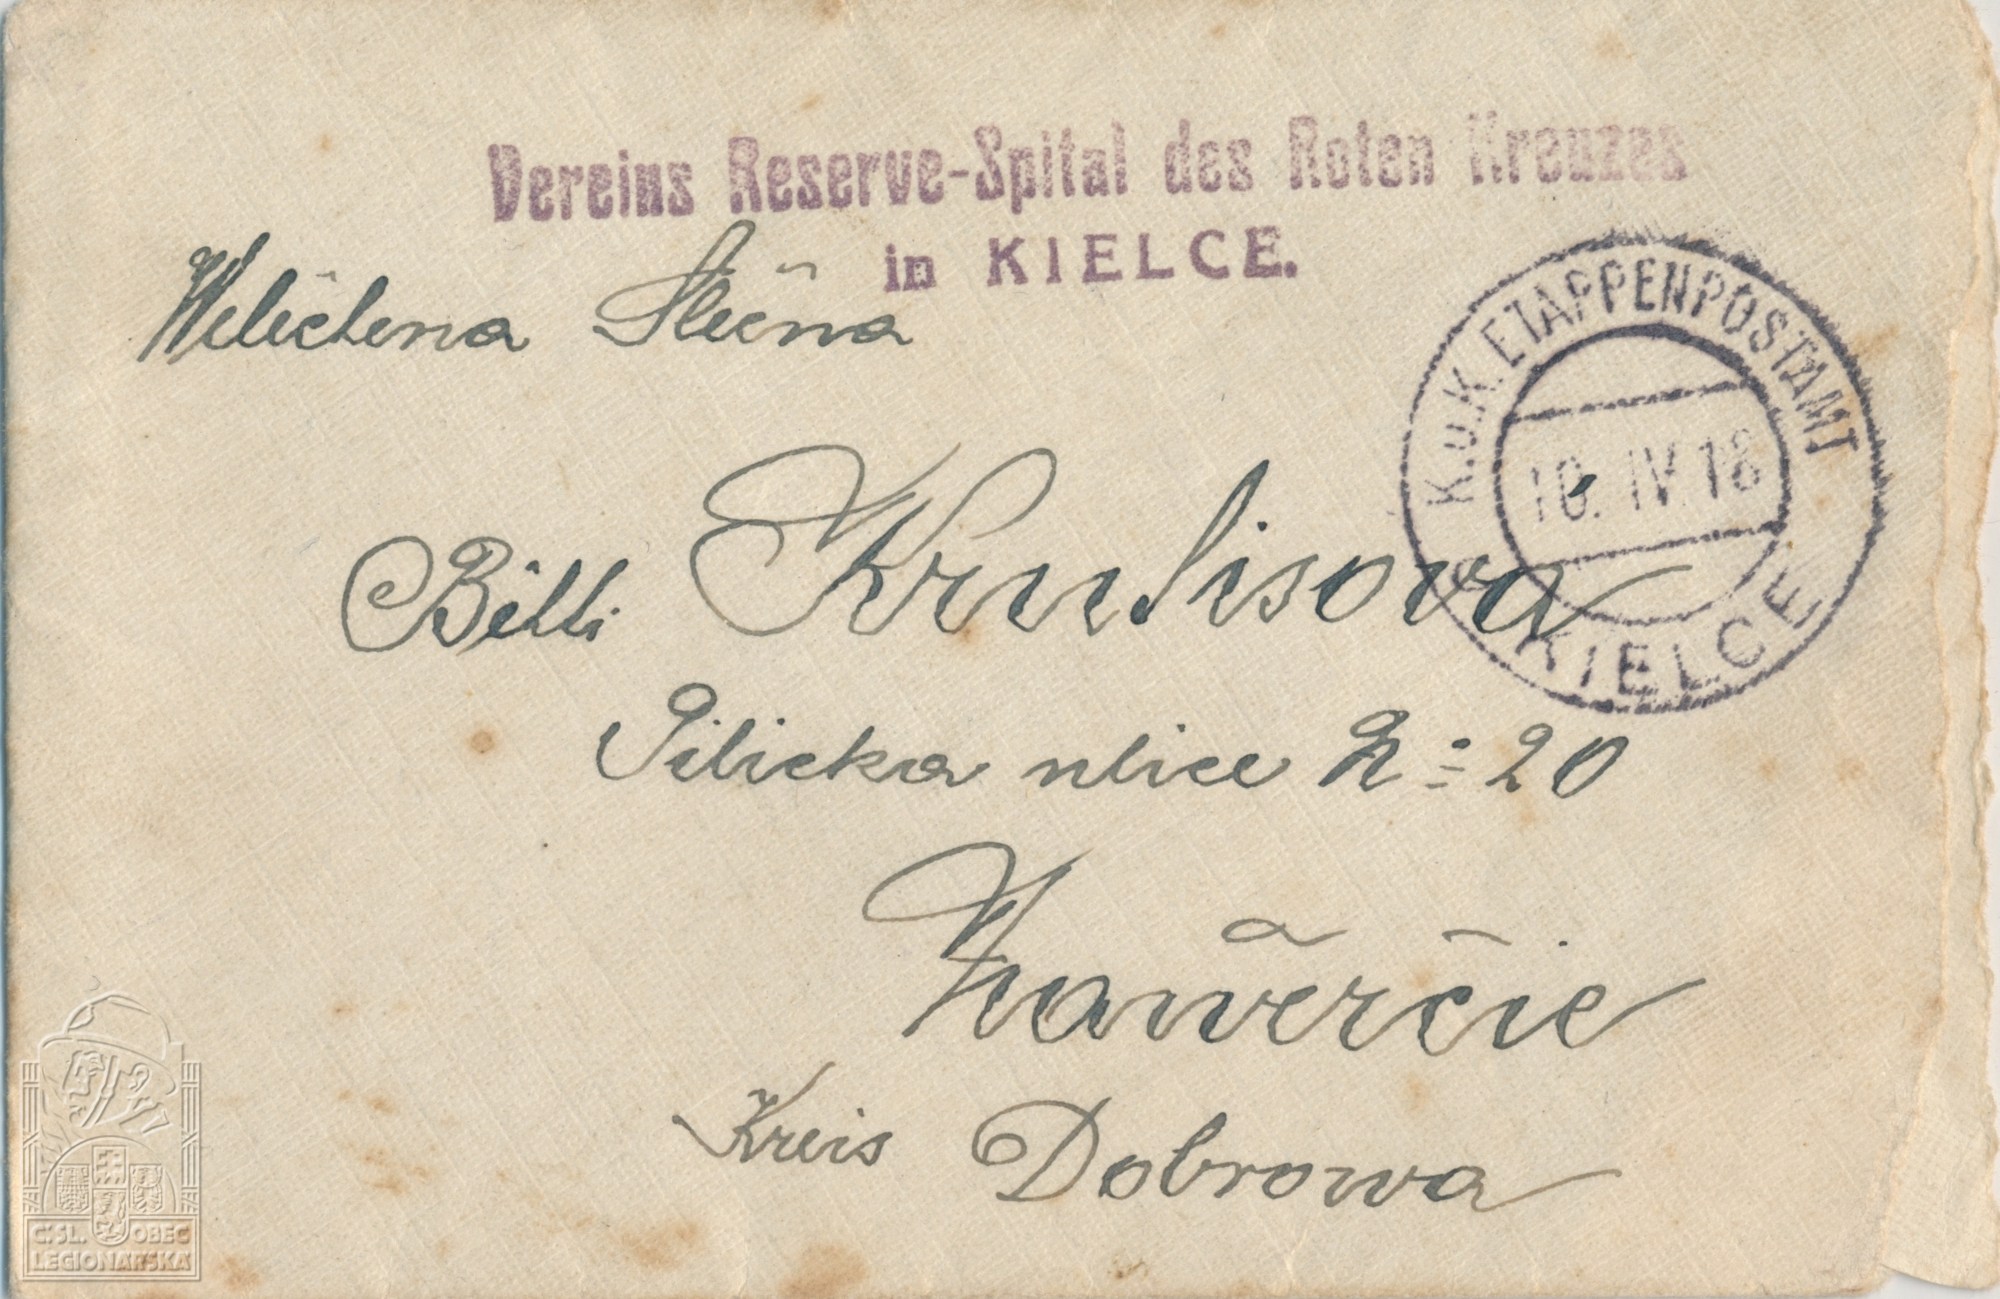 Vereins Reserve-Spital des Roten Kreuzes
in KIELCE.
Welectena Slečna
K.u.K. ETAPPENPOSTAMT
10. IV. 18
KIELCE
Bělli Krulisova
Pilicka ulice № 20
Zawěrčie
Kreis Dobrowa
Č.SL. OBEC
LEGIONÁŘSKÁ